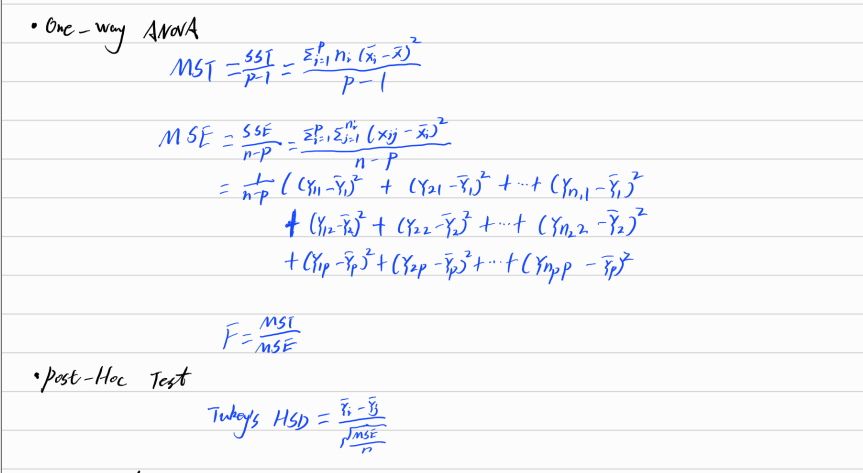 • One-way ANOVA
MST = SST/(p-1) = Σ_{i=1}^{p} n_i (x̄_i - x̄)² / (p-1)
MSE = SSE/(n-p) = Σ_{i=1}^{p} Σ_{j=1}^{n_i} (x_{ij} - x̄_i)² / (n-p)
= 1/(n-p) ( (Y_{11} - Ȳ_1)² + (Y_{21} - Ȳ_1)² + ... + (Y_{n_1 1} - Ȳ_1)²
+ (Y_{12} - Ȳ_2)² + (Y_{22} - Ȳ_2)² + ... + (Y_{n_2 2} - Ȳ_2)²
+ (Y_{1p} - Ȳ_p)² + (Y_{2p} - Ȳ_p)² + ... + (Y_{n_p p} - Ȳ_p)²
F = MST/MSE
• Post-Hoc Test
Tukey's HSD = (Ȳ_i - Ȳ_j) / √(MSE/n)